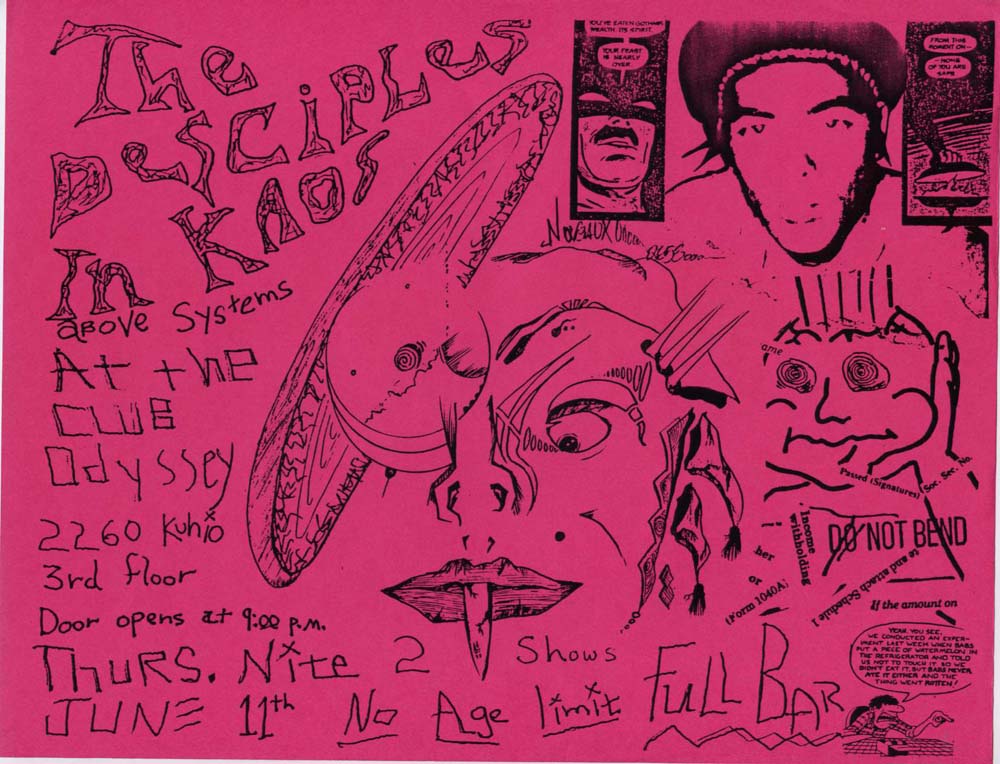 The
DySCiPLes
In KAOS
aBOVe Systems
At the
CLUB
Odyssey
2260 Kuhio
3rd floor
Door opens at 9:00 p.m.
THURS. Nite 2 Shows
JUNE 11th No Age limit FULL BAR
YOU'VE EATEN GOTHAM'S
WEALTH. ITS SPIRIT.
YOUR FEAST
IS NEARLY
OVER.
FROM THIS
MOMENT ON--
--NONE
OF YOU ARE
SAFE.
ame
Passed (Signatures)
Soc. Sec. No.
DO NOT BEND
Income
withholding
her
or
(Form 1040A)
to and attach Schedule 1
If the amount on
YEAH, YOU SEE,
WE CONDUCTED AN EXPER-
IMENT LAST WEEK WHEN BABS
PUT A PIECE OF WATERMELON IN
THE REFRIGERATOR AND TOLD
US NOT TO TOUCH IT. SO WE
DIDN'T EAT IT, BUT BABS NEVER
ATE IT EITHER AND THE
THING WENT ROTTEN!